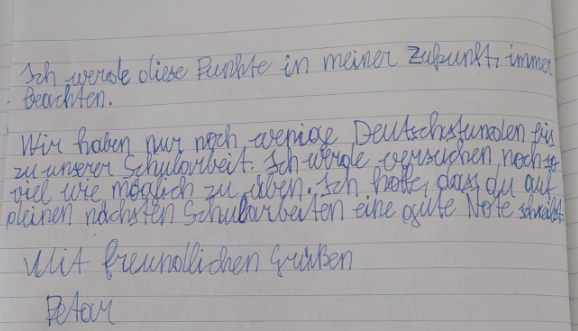 Ich werde diese Punkte in meiner Zukunft, immer
beachten.
Wir haben nur noch wenige Deutschstunden bis
zu unserer Schularbeit. Ich werde versuchen noch so
viel wie möglich zu üben. Ich hoffe, dass du auf
deinen nächsten Schularbeiten eine gute Note schreibst.
Mit freundlichen Grüßen
Petar